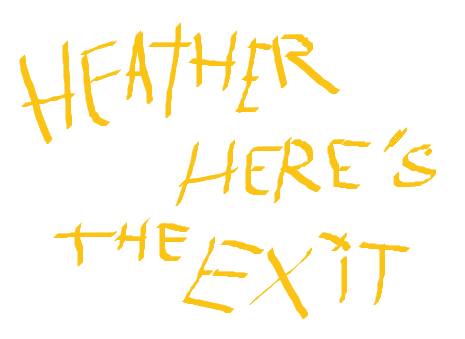 HEATHER
HERE'S
THE EXiT